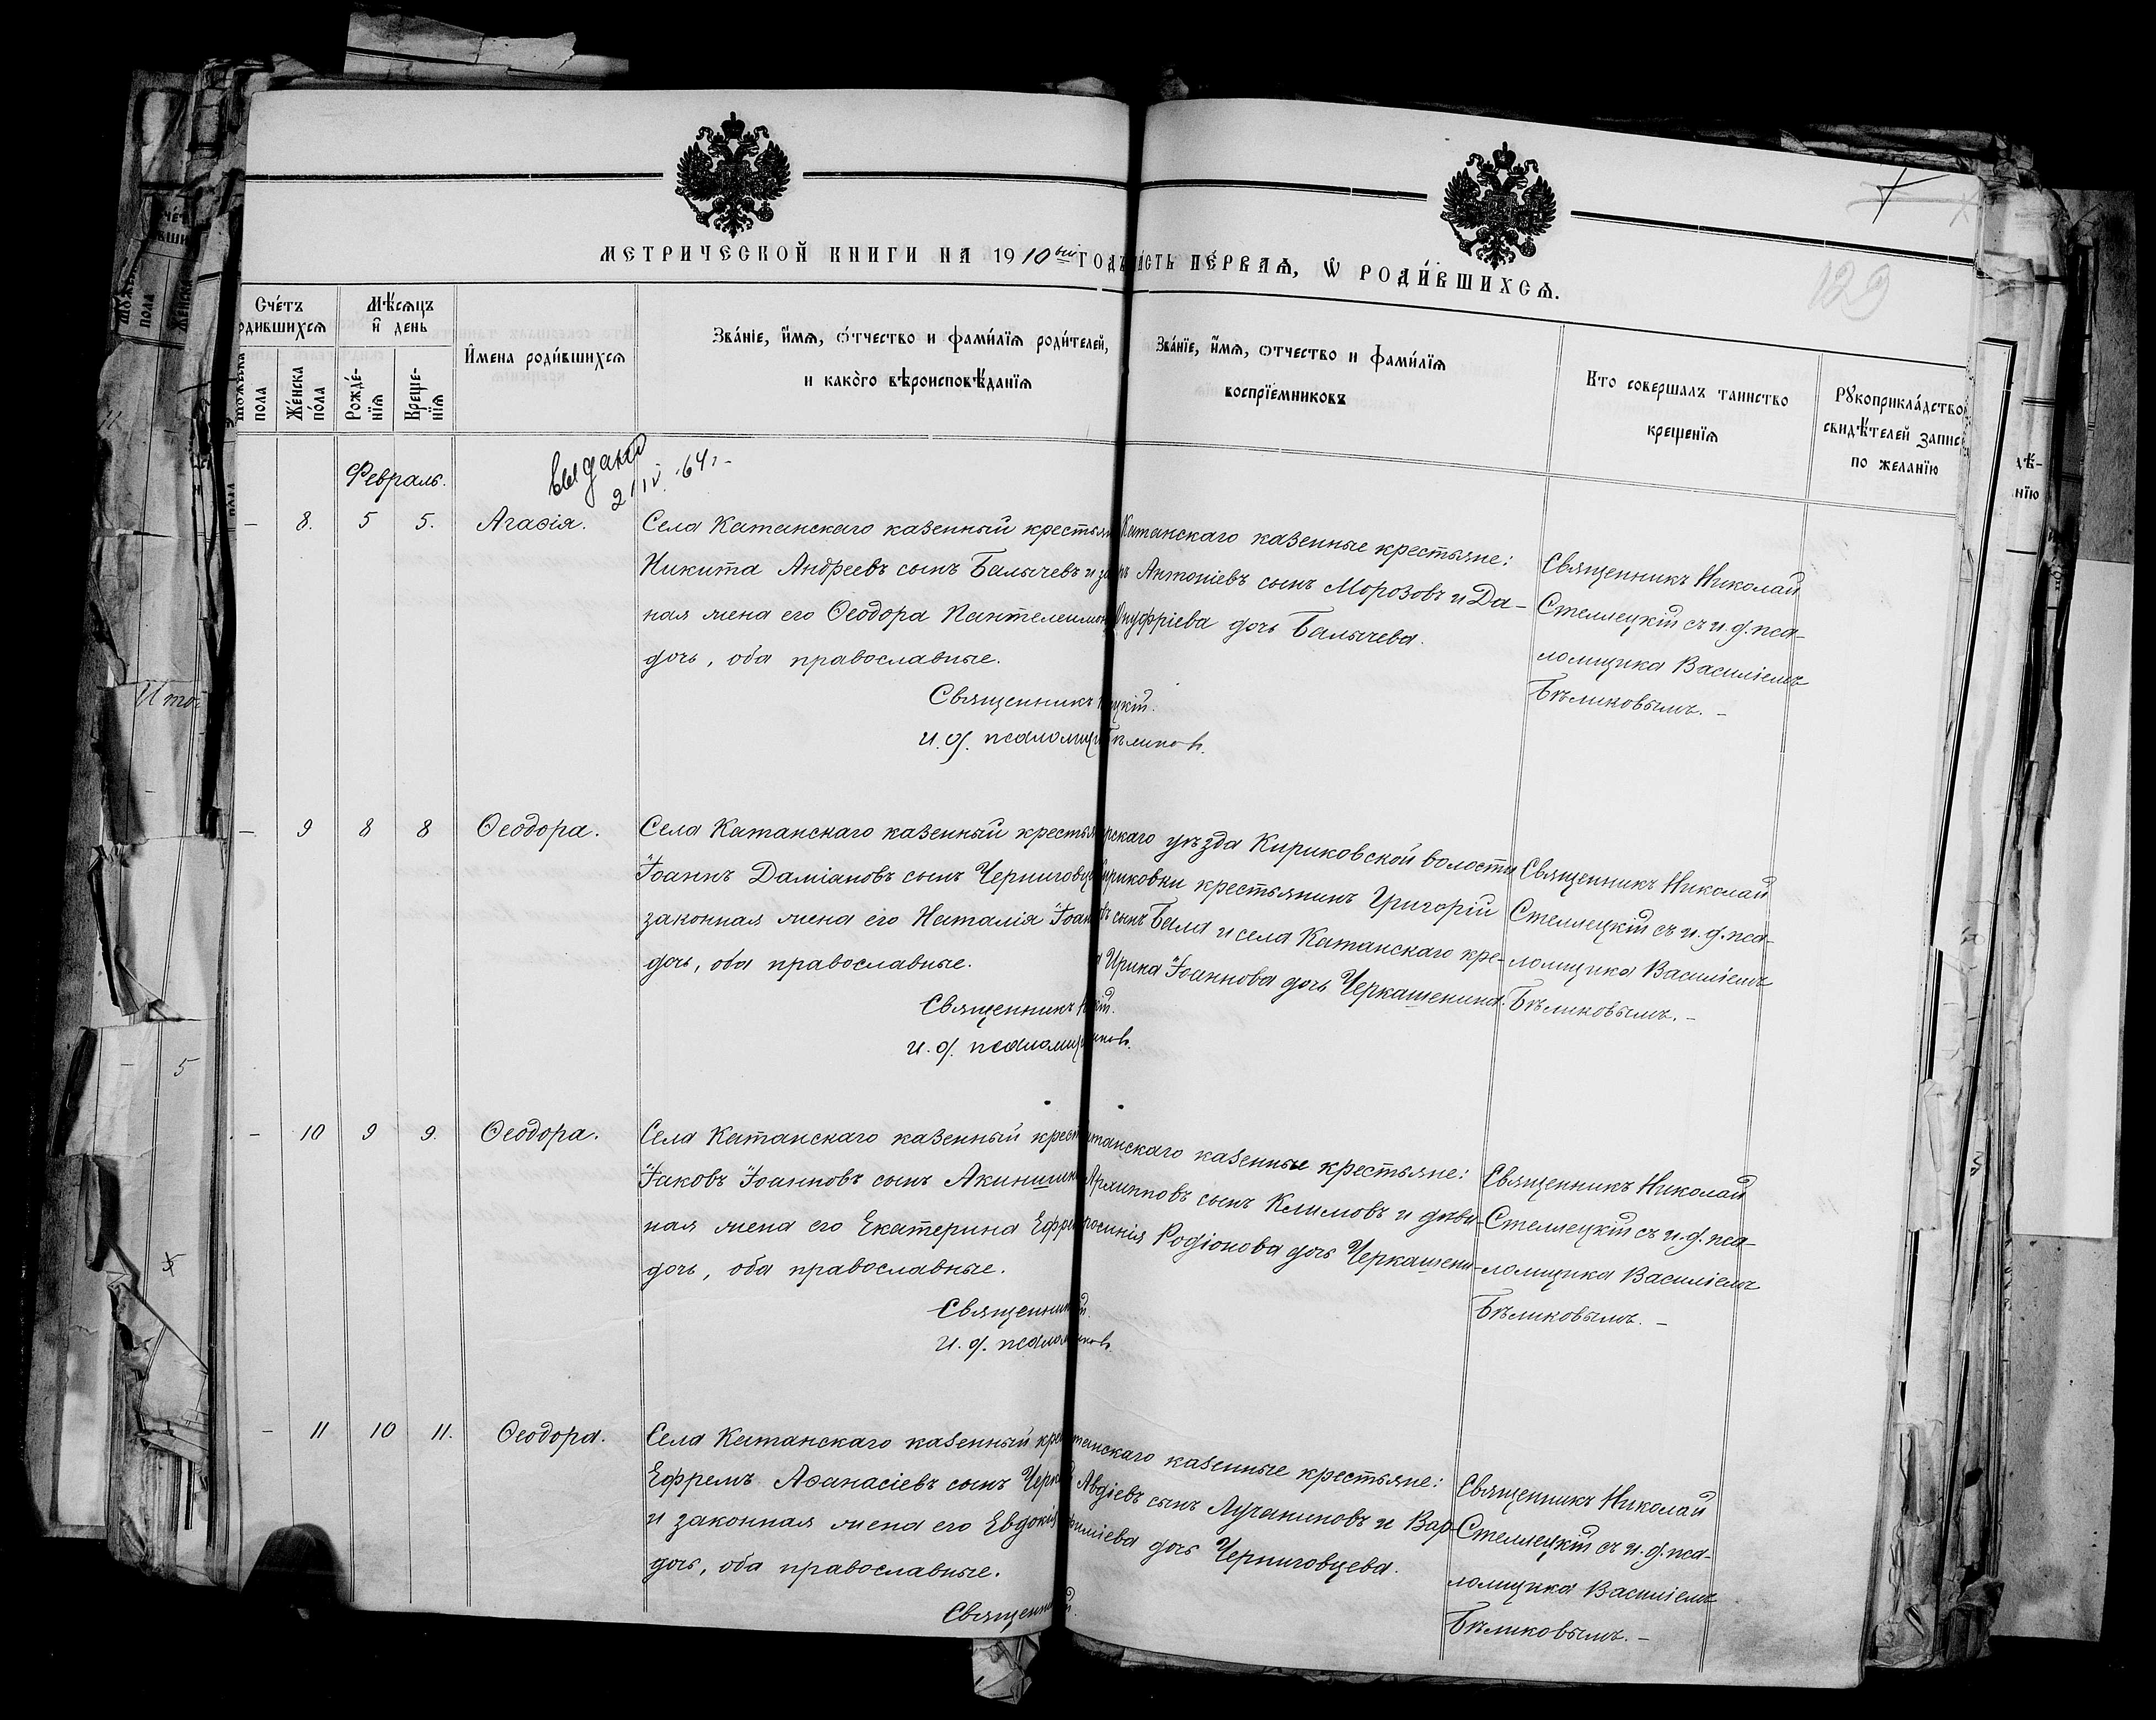 МЕТРИЧЕСКОЙ КНИГИ НА 1910ый ГОДЪ
ЧАСТЬ ПЕ́РВАѦ, Ѡ РОДИ́ВШИХСѦ.
129
Сче́тъ родившихсѧ
Мѣ́сѧцъ и день
Имена роди́вшихсѧ
Зва́ніе, и́мѧ, о́тчество и фами́лїѧ роди́телей,
и како́го вѣроисповѣ́данїѧ
Зва́нїе, и́мѧ, ѻтчество и фами́лїѧ
воспрїемниковъ
Кто совершалъ таинство
крещенїѧ
Рꙋкоприкла́дство
свидѣ́телей запис
по желанїю
Мꙋжеска пола
Же́нска по́ла
Рожде́-нїѧ
Креще-нїѧ
Февраль.
Выдано
2/IV.64г-
— 8. 5 5. Агаѳія.
Села Катанскаго казенный крестьян
Никита Андреевъ сынъ Балычевъ и за
ная жена его Ѳеодора Пантелеимон
дочь, оба православные.
Священникъ
и. д. псаломщ
Катанскаго казенные крестьяне:
Антоніевъ сынъ Морозовъ и Да-
Онуфріева дочь Балычева.
цкій.
Священникъ Николай
Стеллецкій съ и. д. пса-
ломщика Василіемъ
Бѣликовымъ. —
— 9 8 8 Ѳеодора.
Села Катанскаго казенный крестья
Іоаннъ Даміановъ сынъ Черниговц
законная жена его Наталія Іоан
дочь, оба православные.
Священникъ
и. д. псаломщ
рскаго уѣзда Кириковской волости
ириковки крестьянинъ Григорій
въ сынъ Бала и села Катанскаго кре-
Ирина Іоаннова дочь Черкашенина.
Священникъ Николай
Стеллецкій съ и. д. пса-
ломщика Василіемъ
Бѣликовымъ. —
— 10 9 9. Ѳеодора.
Села Катанскаго казенный крест
Іаковъ Іоанновъ сынъ Акиншинъ
ная жена его Екатерина Ефре
дочь, оба православные.
Священник
и. д. псалом
танскаго казенные крестьяне:
Архипповъ сынъ Климовъ и дѣви-
росинія Родіонова дочь Черкашени-
Священникъ Николай
Стеллецкій съ и. д. пса-
ломщика Василіемъ
Бѣликовымъ. —
— 11 10 11. Ѳеодора.
Села Катанскаго казенный кре
Ефремъ Аѳанасіевъ сынъ Черка
и законная жена его Евдокія
дочь, оба православные.
Священни
танскаго казенные крестьяне:
Авдіевъ сынъ Лучаниновъ и Вар-
филіева дочь Черниговцева.
Священникъ Николай
Стеллецкій съ и. д. пса-
ломщика Василіемъ
Бѣликовымъ. —